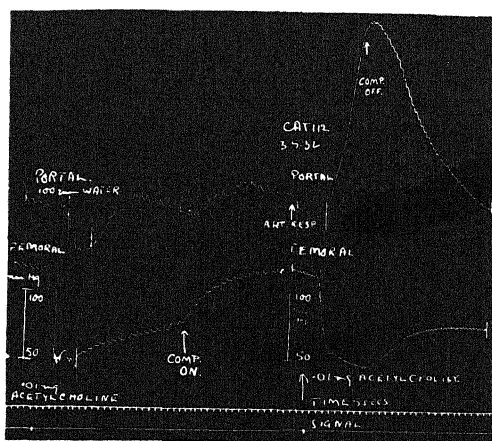 COMP.
OFF.
CAT 112
PORTAL
PORTAL.
100 mm WATER
ART. RESP
FEMORAL
FEMORAL
mm Hg
100
100
50
50
COMP.
ON.
.01 mg
ACETYLCHOLINE
.01 mg ACETYLCHOLINE
TIME 5 SECS
SIGNAL